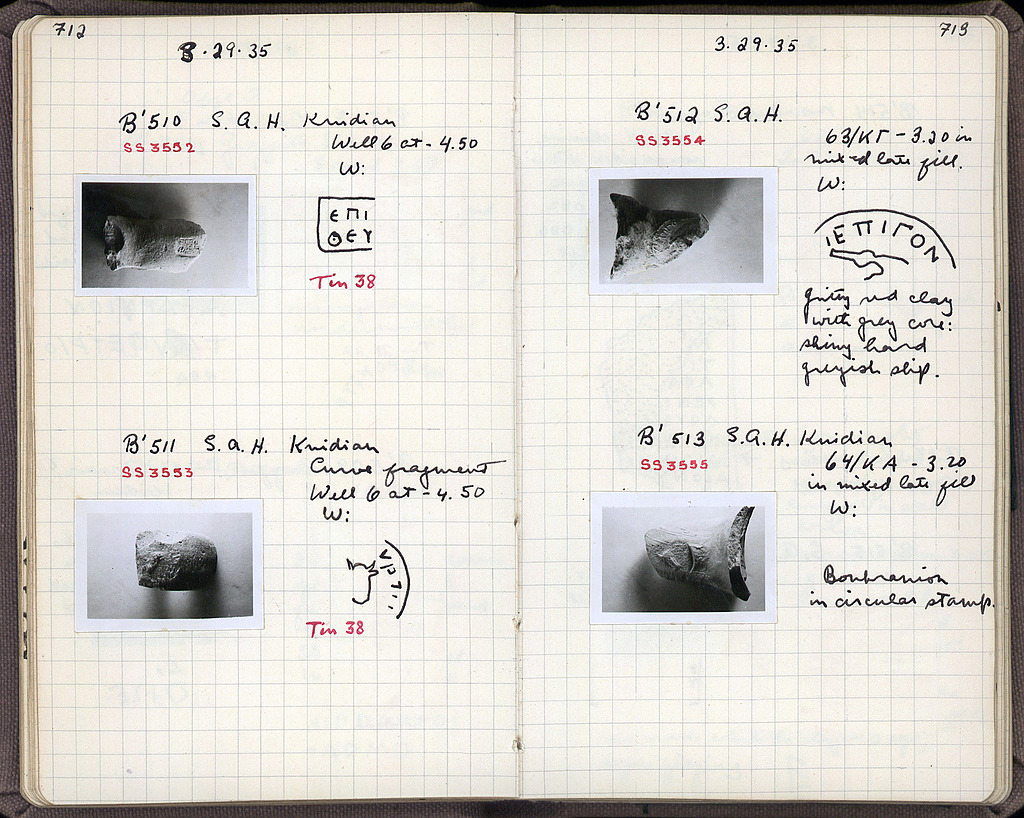 712
3·29·35
B'510 S.A.H. Knidian
SS3552
Well 6 at -4.50
W:
ΕΠΙ
ΘΕΥ
Tin 38
B'511 S.A.H. Knidian
SS3553
Curve fragment
Well 6 at -4.50
W:
Tin 38
713
3.29.35
B'512 S.A.H.
SS3554
63/ΚΓ -3.20 in
mixed late fill.
W:
ΕΠΙΓΟΝ
gritty red clay
with grey core:
shiny hard
greyish slip.
B'513 S.A.H. Knidian
SS3555
64/ΚΑ -3.20
in mixed late fill
W:
Boukranion
in circular stamp.